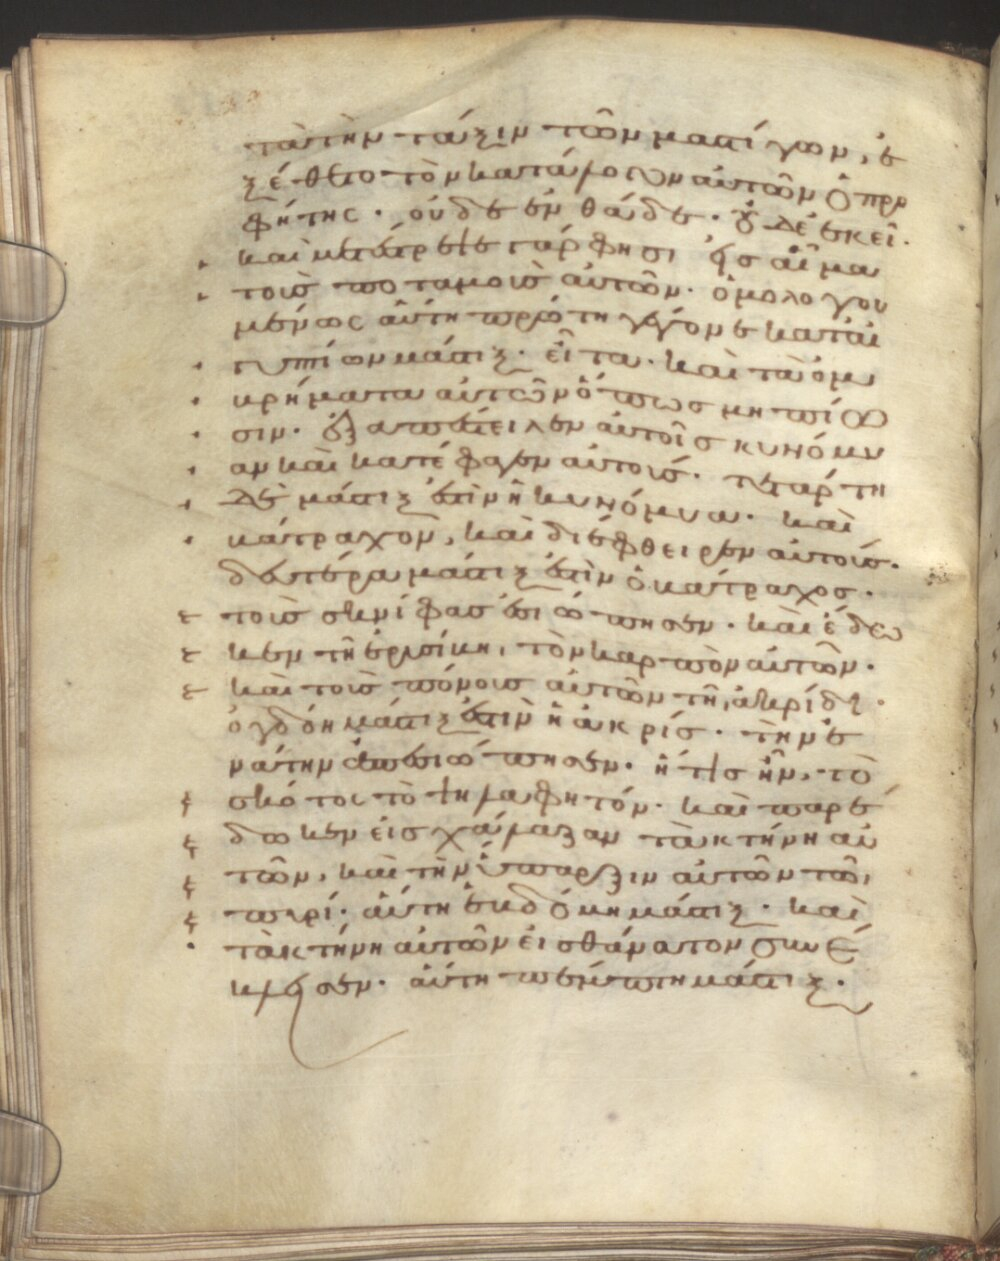 ταύτην τάξιν τῶν μαστίγων, ἐ
ξέθετο τὸν κατάλογον αὐτῶν ὁ προ
φήτης. οὐδὲ ἐνθάδε. οὐδὲ ἐκεῖ.
καὶ μετέστρεψε γάρ φησι εἰς αἷμα
τοὺς ποταμοὺς αὐτῶν. ὁμολογου
μένως αὕτη πρώτη γέγονε κατ αἰ
γυπτίων μάστιξ. εἶτα. καὶ τὰ ὀμ
βρήματα αὐτῶν ὅπως μὴ πίω
σιν. ἐξαπέστειλεν αὐτοῖς κυνόμυι
αν καὶ κατέφαγεν αὐτούς. τετάρτη
δὲ μάστιξ ἐστὶν ἡ κυνόμυια. καὶ
βάτραχον, καὶ διέφθειρεν αὐτούς.
δευτέρα μάστιξ ἐστὶν ὁ βάτραχος.
τοὺς σκνίφας ἐσιώπησεν. καὶ ἔδω
κεν τῇ ἐρυσίβῃ, τὸν καρπὸν αὐτῶν.
καὶ τοὺς πόνους αὐτῶν τῇ ἀκρίδι.
ὀγδόη μάστιξ ἐστὶν ἡ ἀκρίς. τὴν ἐ
νάτην ἀπεσιώπησεν. ἥτις ἦν, τὸ
σκότος τὸ ψηλαφητόν. καὶ παρέ
δωκεν εἰς χάλαζαν τὰ κτήνη αὐ
τῶν, καὶ τὴν ὕπαρξιν αὐτῶν τῶ
πυρί. αὕτη ἑβδόμη μάστιξ. καὶ
τὰ κτήνη αὐτῶν εἰς θάνατον συνέ
κλεισεν. αὕτη πέμπτη μάστιξ.